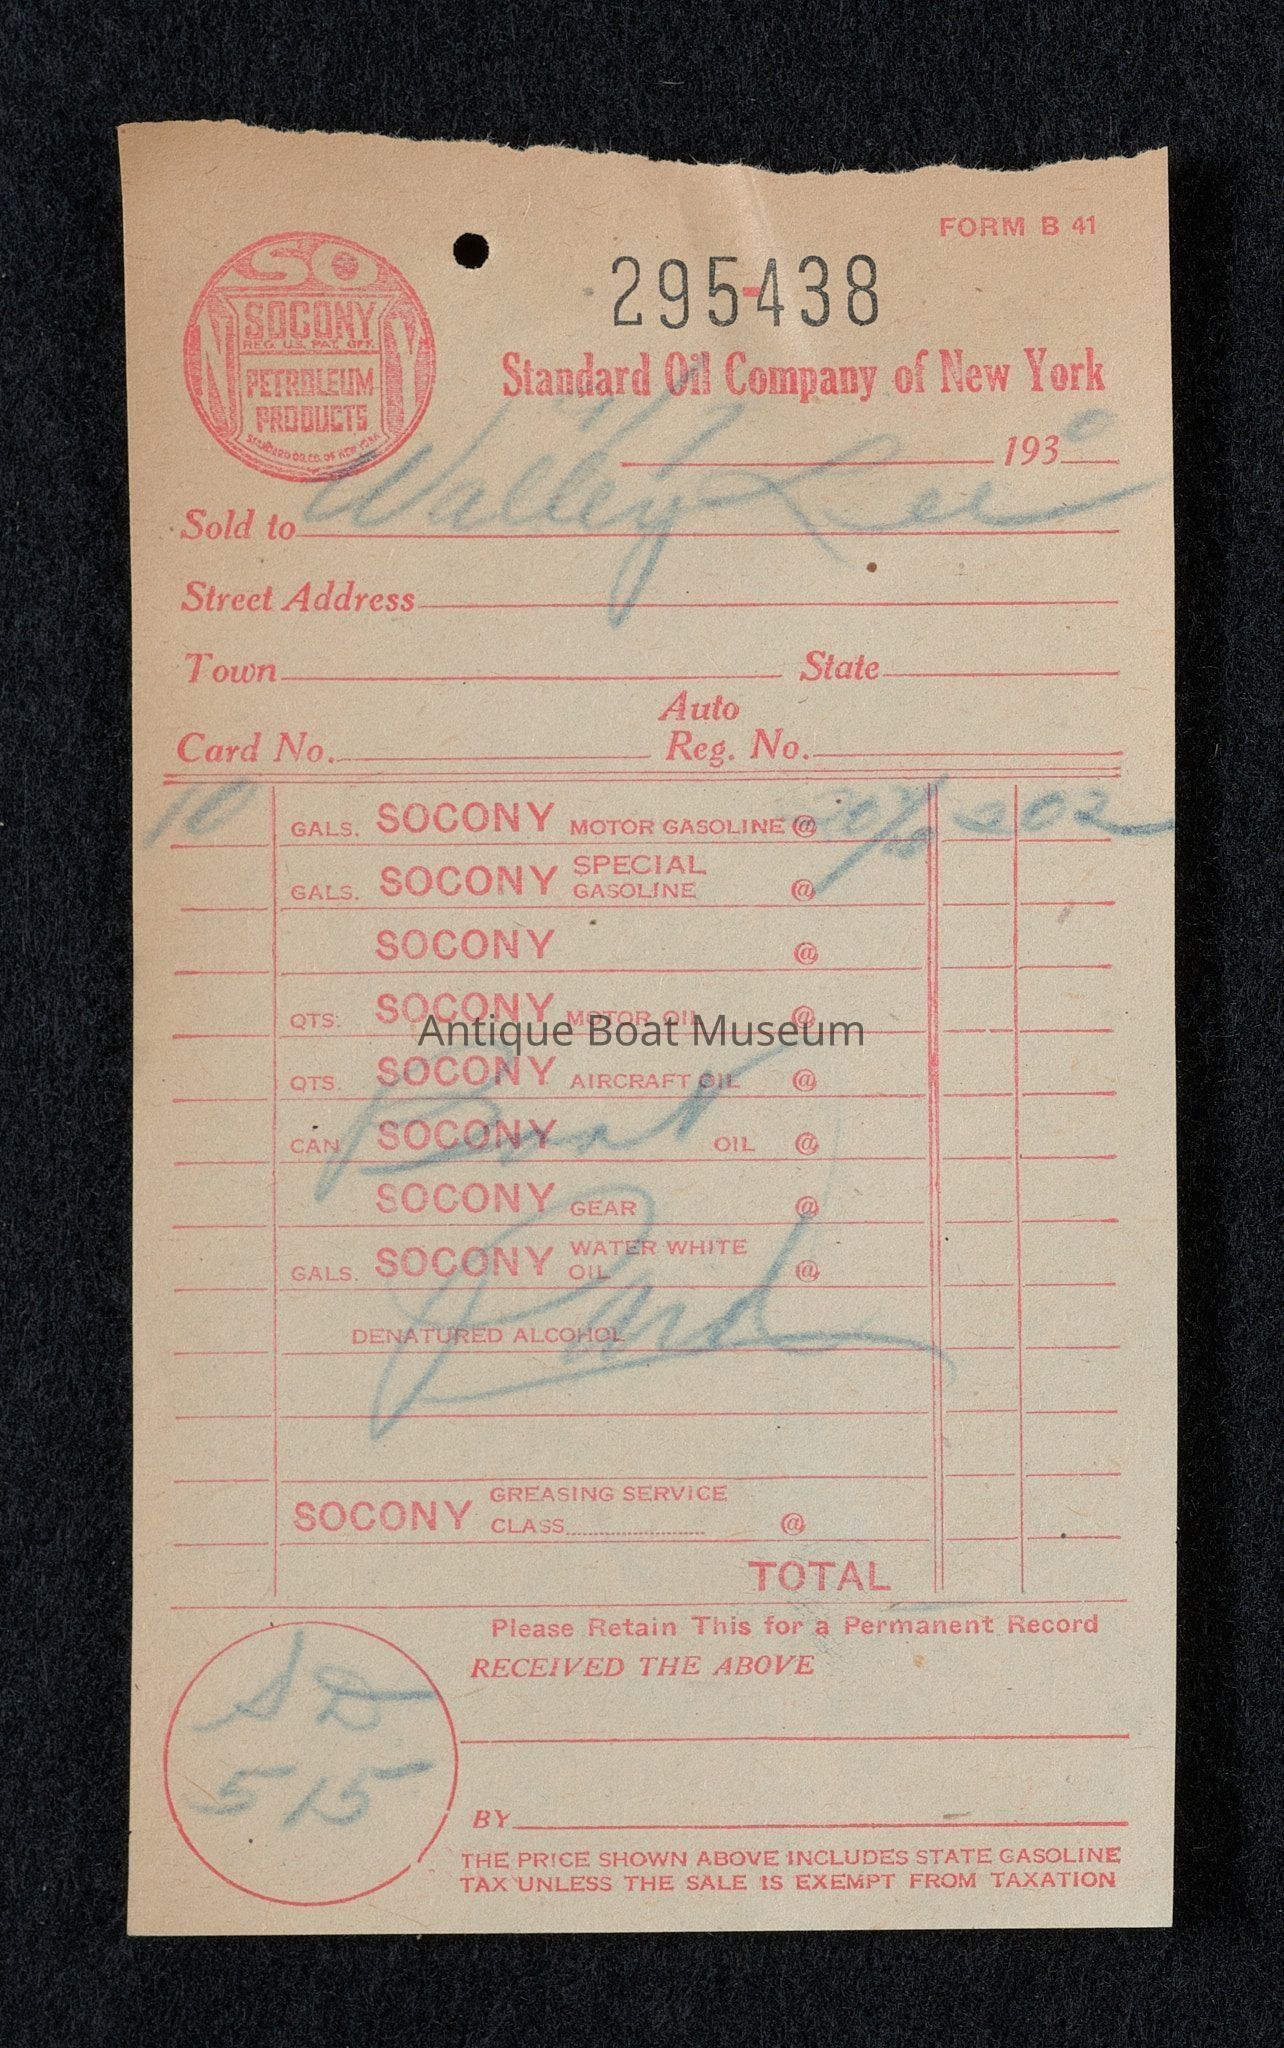 FORM B 41
295-438
SO
N Y
SOCONY
REG. U.S. PAT. OFF.
PETROLEUM
PRODUCTS
STANDARD OIL CO. OF NEW YORK
Standard Oil Company of New York
1930
Sold to Walley Lee
Street Address
Town State
Auto
Card No. Reg. No.
10 GALS. SOCONY MOTOR GASOLINE @ 202
GALS. SOCONY SPECIAL GASOLINE @
SOCONY @
QTS. SOCONY MOTOR OIL @
Antique Boat Museum
QTS. SOCONY AIRCRAFT OIL @
CAN SOCONY OIL @
Boat
SOCONY GEAR @
GALS. SOCONY WATER WHITE OIL @
Paid
DENATURED ALCOHOL
SOCONY GREASING SERVICE
CLASS @
TOTAL
Please Retain This for a Permanent Record
RECEIVED THE ABOVE
SD
515
BY
THE PRICE SHOWN ABOVE INCLUDES STATE GASOLINE
TAX UNLESS THE SALE IS EXEMPT FROM TAXATION